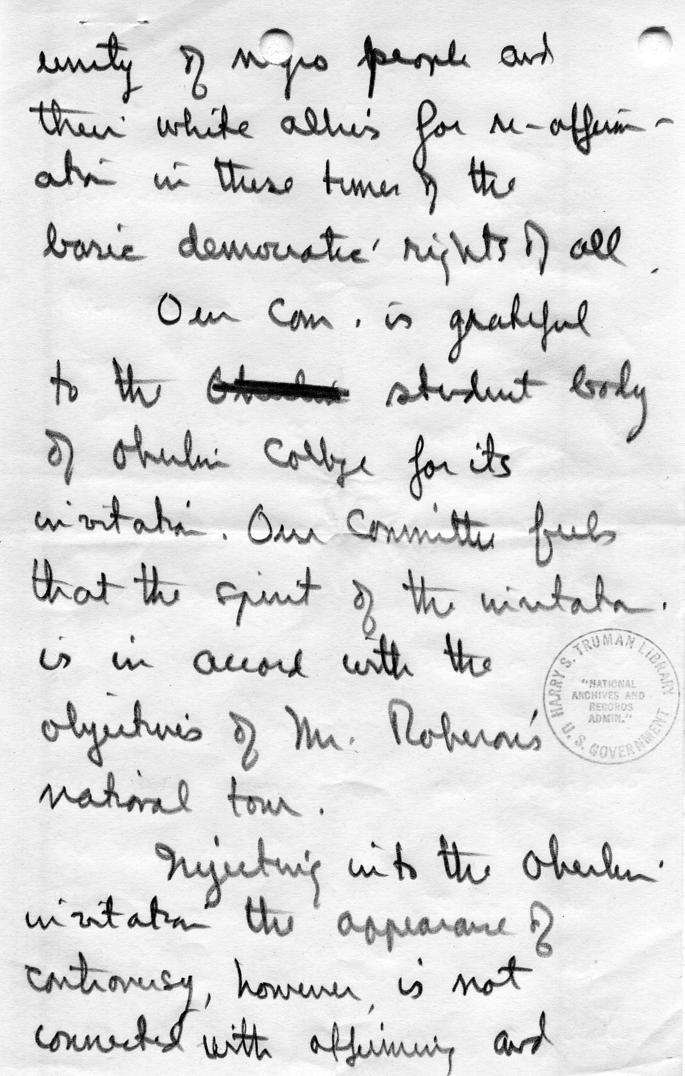 unity of negro people and
their white allies for re-affirm-
ation in these times of the
basic democratic rights of all.
Our Com. is grateful
to the Oberlin student body
of Oberlin College for its
invitation. Our Committee feels
that the spirit of the invitation.
is in accord with the
objectives of Mr. Robeson's
national tour.
Injecting into the Oberlin
invitation the appearance of
controversy, however, is not
connected with affirming and
HARRY S. TRUMAN LIBRARY
"NATIONAL
ARCHIVES AND
RECORDS
ADMIN."
U. S. GOVERNMENT